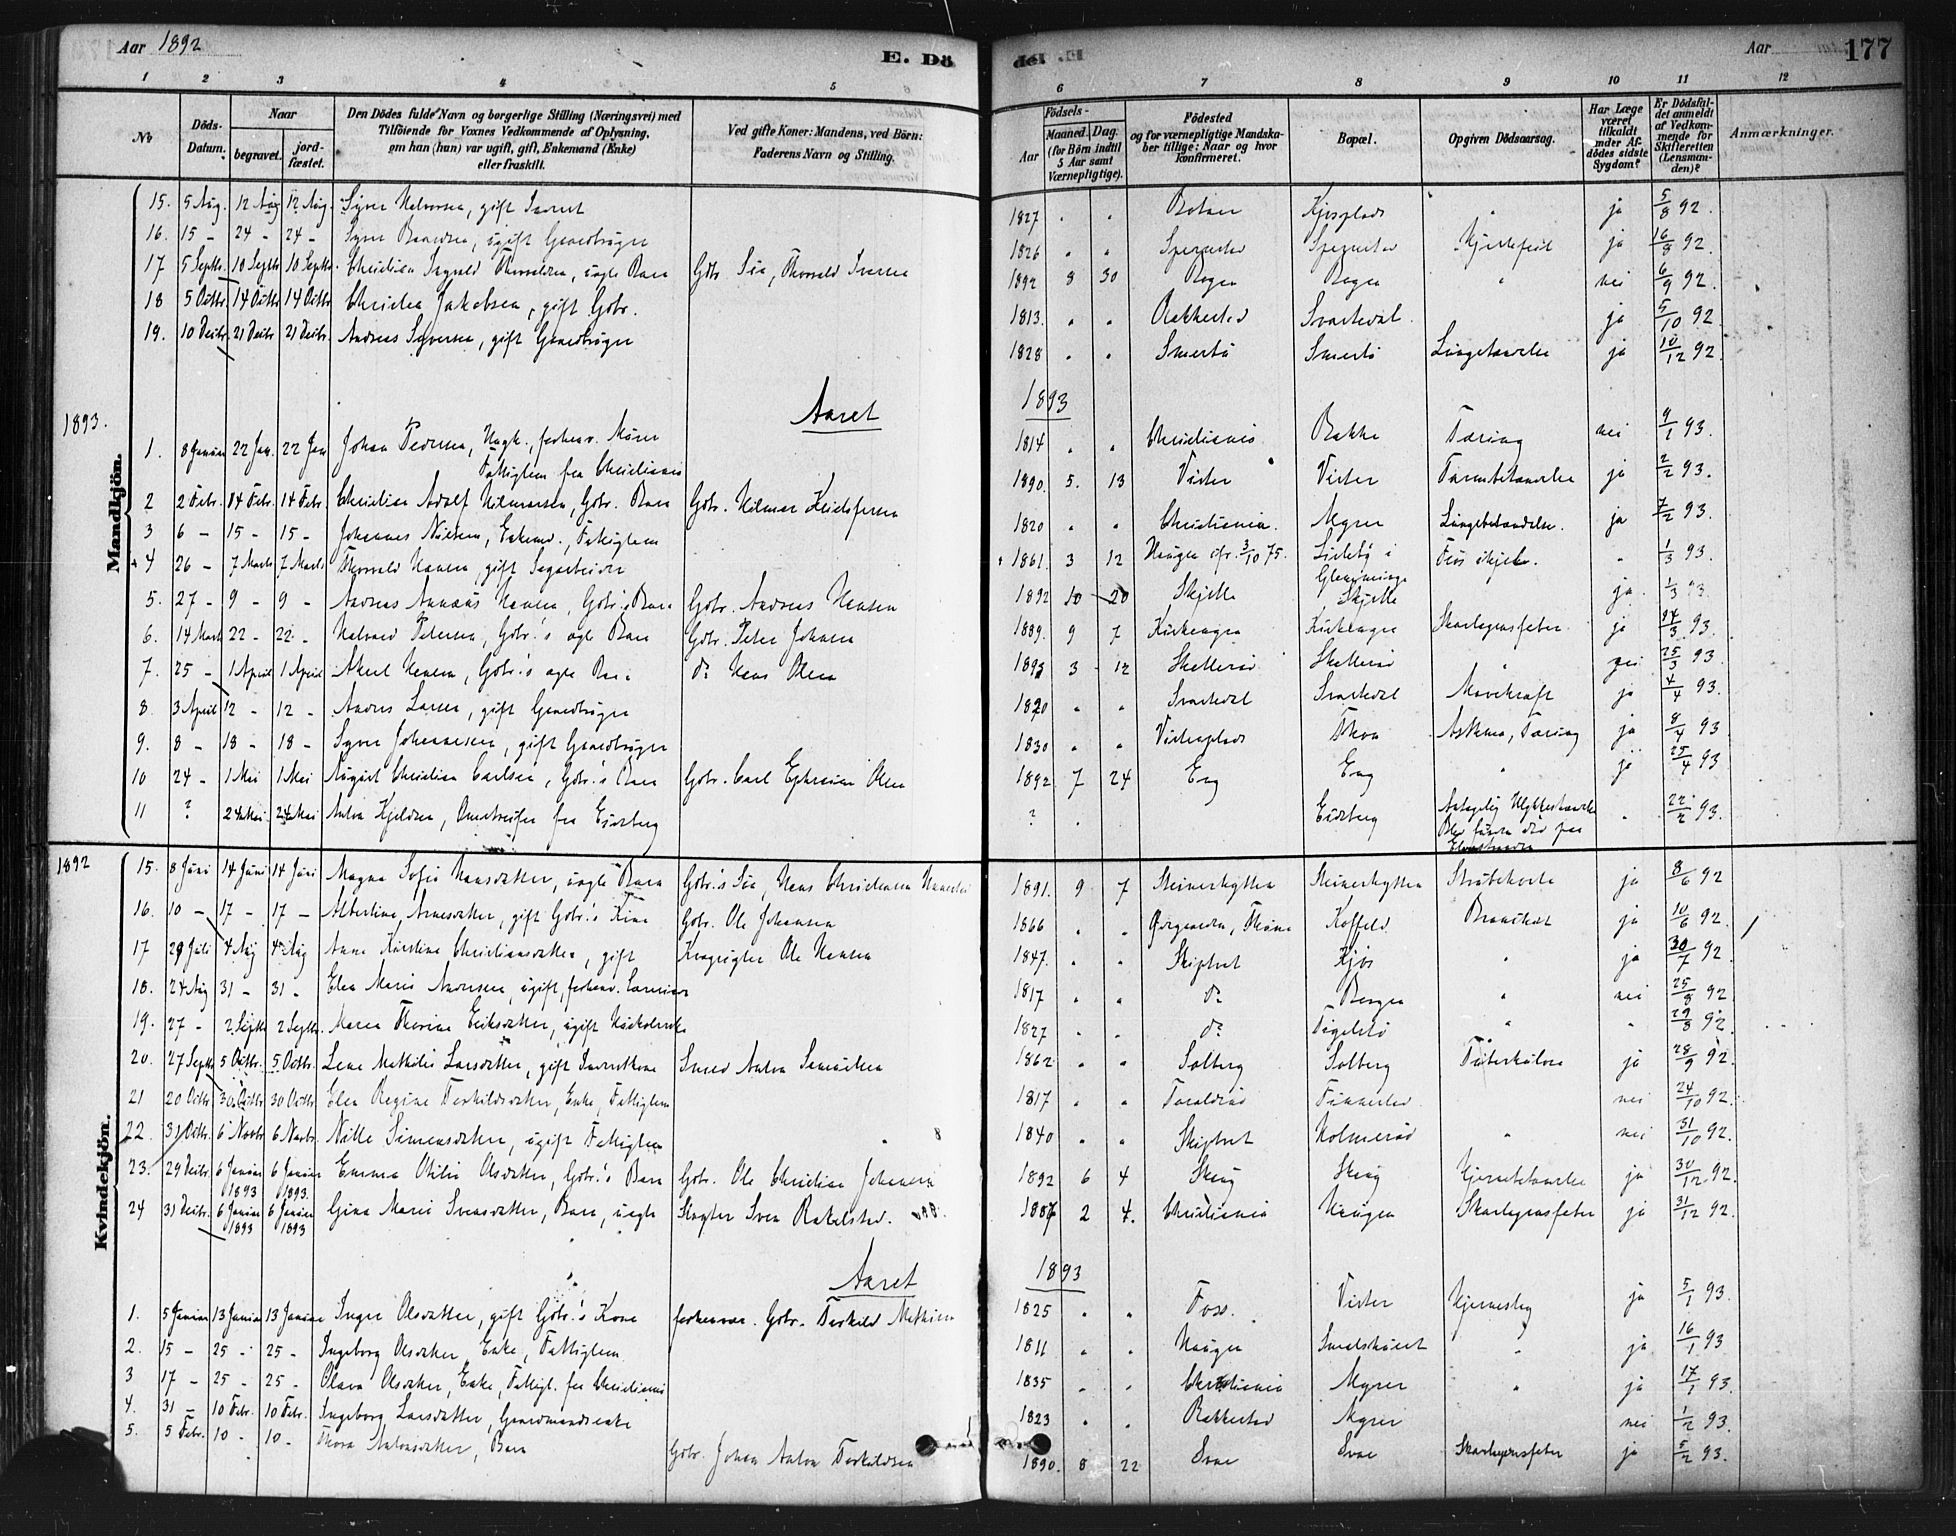 Aar 1892
E. Dö
de. E.
Aar
177
1 2 3 4 5 6 7 8 9 10 11 12
No
Döds-Datum.
Naar
begravet.
jord-fæstet.
Den Dödes fulde Navn og borgerlige Stilling (Næringsvei) med
Tilföiende for Voxnes Vedkommende af Oplysning,
om han (hun) var ugift, gift, Enkemand (Enke)
eller fraskilt.
Ved gifte Koner: Mandens, ved Börn:
Faderens Navn og Stilling.
Födsels-
Aar
Maaned. Dag.
(for Börn indtil
5 Aar samt
Værnepligtige).
Födested
og for værnepligtige Mandska-
ber tillige: Naar og hvor
konfirmeret.
Bopæl.
Opgiven Dödsaarsag.
Har Læge
været
tilkaldt
under Af-
dödes sidste
Sygdom?
Er Dödsfal-
det anmeldt
af Vedkom-
mende for
Skifteretten
(Lensman-
den)?
Anmærkninger.
Mandkjön.
15. 5 Aug. 12 Aug 12 Aug. Syver Halvorsen, gift 1827 " " Kjosplads " ja 5/8 92.
16. 15 - 24 - 24 - Syver ugift Gaardbruger 1826 " " Spernestad Spernestad Hjertefeil ja 16/8 92.
17 5 Septbr. 10 Septb 10 Septb. Christian Sigvald Thorvaldsen, uægte Barn Gbr. Søn, Thorvald Iversen 1892 8 30 Bøgen Bøgen " nei 6/9 92.
18 5 Octbr 14 Octbr 14 Octbr Christen Jakobsen, gift Gbr. 1813. " " Rakkestad Svartedal ja 5/10 92
19. 10 Decbr 21 Decbr 21 Decbr. Andreas Syversen, gift Gaardbruger 1828 " " Smertu Smertu Lungebetændelse ja 10/12 92.
1893.
Aaret 1893
1. 8 Januar 22 Jan. 22 Jan Johan Pedersen, Ungk., forhenv. Murer
Fattiglem fra Christiania 1814 " " Christiania Bakke Tæring nei 9/1 93.
2 2 Febr. 14 Febr. 14 Febr. Christian Adolf Hilmarsen, Gbr. Barn Gbr. Hilmar Kristofersen 1890. 5. 13 Vister Vister Tarmbetændelse ja 2/2 93.
3 6 - 15 - 15 - Johannes Nielsen, Enkemd., Fattiglem 1820 " " Christiania. Myrer Lungebetændelse. ja 7/2 93.
4 26 - 7 Marts 7 Marts Thorvald Hansen, gift Sagarbeider 1861. 3 12 Haugen cfr. 3/10 75. Lisleby i
Glemminge Frøs ihjel. " 1/3 93.
5. 27 - 9 - 9 - Andreas Hansen, Gbr.'s Barn Gbr. Andreas Hansen 1892 10 20 Skjelle Skjelle ja. 1/3 93.
6. 14 Mart 22 - 22 - Halvard Petersen, Gbr.'s ægte Barn Gbr. Peter Johnsen 1889. 9 7 Kirkeengen Kirkeengen Skarlagensfeber ja 3 93.
7. 25 - 1 April 1 April Aksel Hansen, Gbr.'s ægte Barn do Hans Olsen 1893 3 12 Skallerud Skallerud " nei 25/3 93.
8. 3 April 12 - 12 - Anders Larsen, gift Gaardbruger 1820 " " Svartedal Svartedal Mavekræft ja 4/4 93.
9. 8 - 18 - 18 - Syver Johannesen, gift Gaardbruger 1830 " " Visterplads Asthma, Tæring ja 8/4 93
10 24 - 1 Mai 1 Mai August Christian Carlsen, Gbr.'s Barn Gbr. Carl Ephraim Olsen 1892 7 24 Eng Eng " ja 25/4 93
11 ? 24 Mai 24 Mai Anton Kjeldsen, Omstreifer fra Eidsberg ? . Eidsberg Antagelig Ulykkestilfælde
Blev funden død paa
" 22/2 93.
1892
Kvindekjön.
15. 8 Juni 14 Juni 14 Juni Magna Sofie Hansdatter, uægte Barn Gbr.'s Søn, Hans Christensen 1891. 9 7 Steinerhytten Steinerhytten Strubehoste ja 8/6 92
16. 10 - 17 - 17 - Albertine Arnesdatter, gift Gbr.'s Kone Gbr. Ole Johansen 1866 " " Koffeld ja 10/6 92.
17 29 Juli 4 Aug 4 Aug Anne Kirstine Christiansdatter, gift Ole Hansen 1847. " " Skiptvet Kjøs " ja 30/7 92.
18. 24 Aug 31 - 31 - Elen Marie Andersen, ugift, forhenv. 1817 " " do Borgen " nei 25/8 92
19. 27 - 2 Septb 2 Septb. Maren Thorine Eriksdatter, ugift 1827 " " do " " 29/8 92.
20. 27 Septb 5 Octbr. 5 Octbr. Lene Mathilde Larsdatter, gift Smed Anton Samuelsen 1862 " " Solberg Solberg Tuberkulose ja 28/9 92.
21 20 Octbr 30 Octbr 30 Octbr Elen Regine Torkildsdatter, Enke, Fattiglem 1817 " " Toraldrud Finnestad nei 24/10 92.
22. 31 Octbr. 6 Novbr 6 Novbr. Nille Simensdatter, ugift Fattiglem 1840 " " Skiptvet Holmerød " nei 31/10 92.
23. 29 Decbr. 6 Januar
1893 6 Januar
1893. Emma Otilie Olsdatter, Gbr.'s Barn Gbr. Ole Christian Johansen 1892 6 4 Skaug Skaug Hjernebetændelse ja 30/12 92.
24 31 Decbr. 6 Januar
1893 6 Januar
1893 Gina Marie Svensdatter, Barn, uægte Slagter Sven Rakelstad. 1887 2 4. Christiania Haugen Skarlagensfeber ja 31/12 92.
Aaret 1893
1. 5 Januar 13 Januar 13 Januar Inger Olsdatter, gift Gbr.'s Kone forhenvær. Gbr. Torkild Mathisen 1825 " " Foss. Vister Hjerneslag ja 5/1 93.
2. 15 - 25 - 25 - Ingeborg Olsdatter, Enke, Fattiglem 1811 " " Haugen " ja 16/1 93
3 17 - 25 - 25 - Olava Olsdatter, Enke, Fattigl. fra Christiania 1835 " " Christiania Myrer " ja 17/1 93.
4. 31 - 10 Febr. 10 Febr. Ingeborg Larsdatter, Gaardmandsenke 1823 " " Rakkestad Myrer nei 1/2 93.
5. 5 Febr. 10 - 10 - Thora Antonsdatter, Barn Gbr. Johan Anton Torkildsen 1890. 8 22 Svae Svae Skarlagensfeber ja 5/2 93.